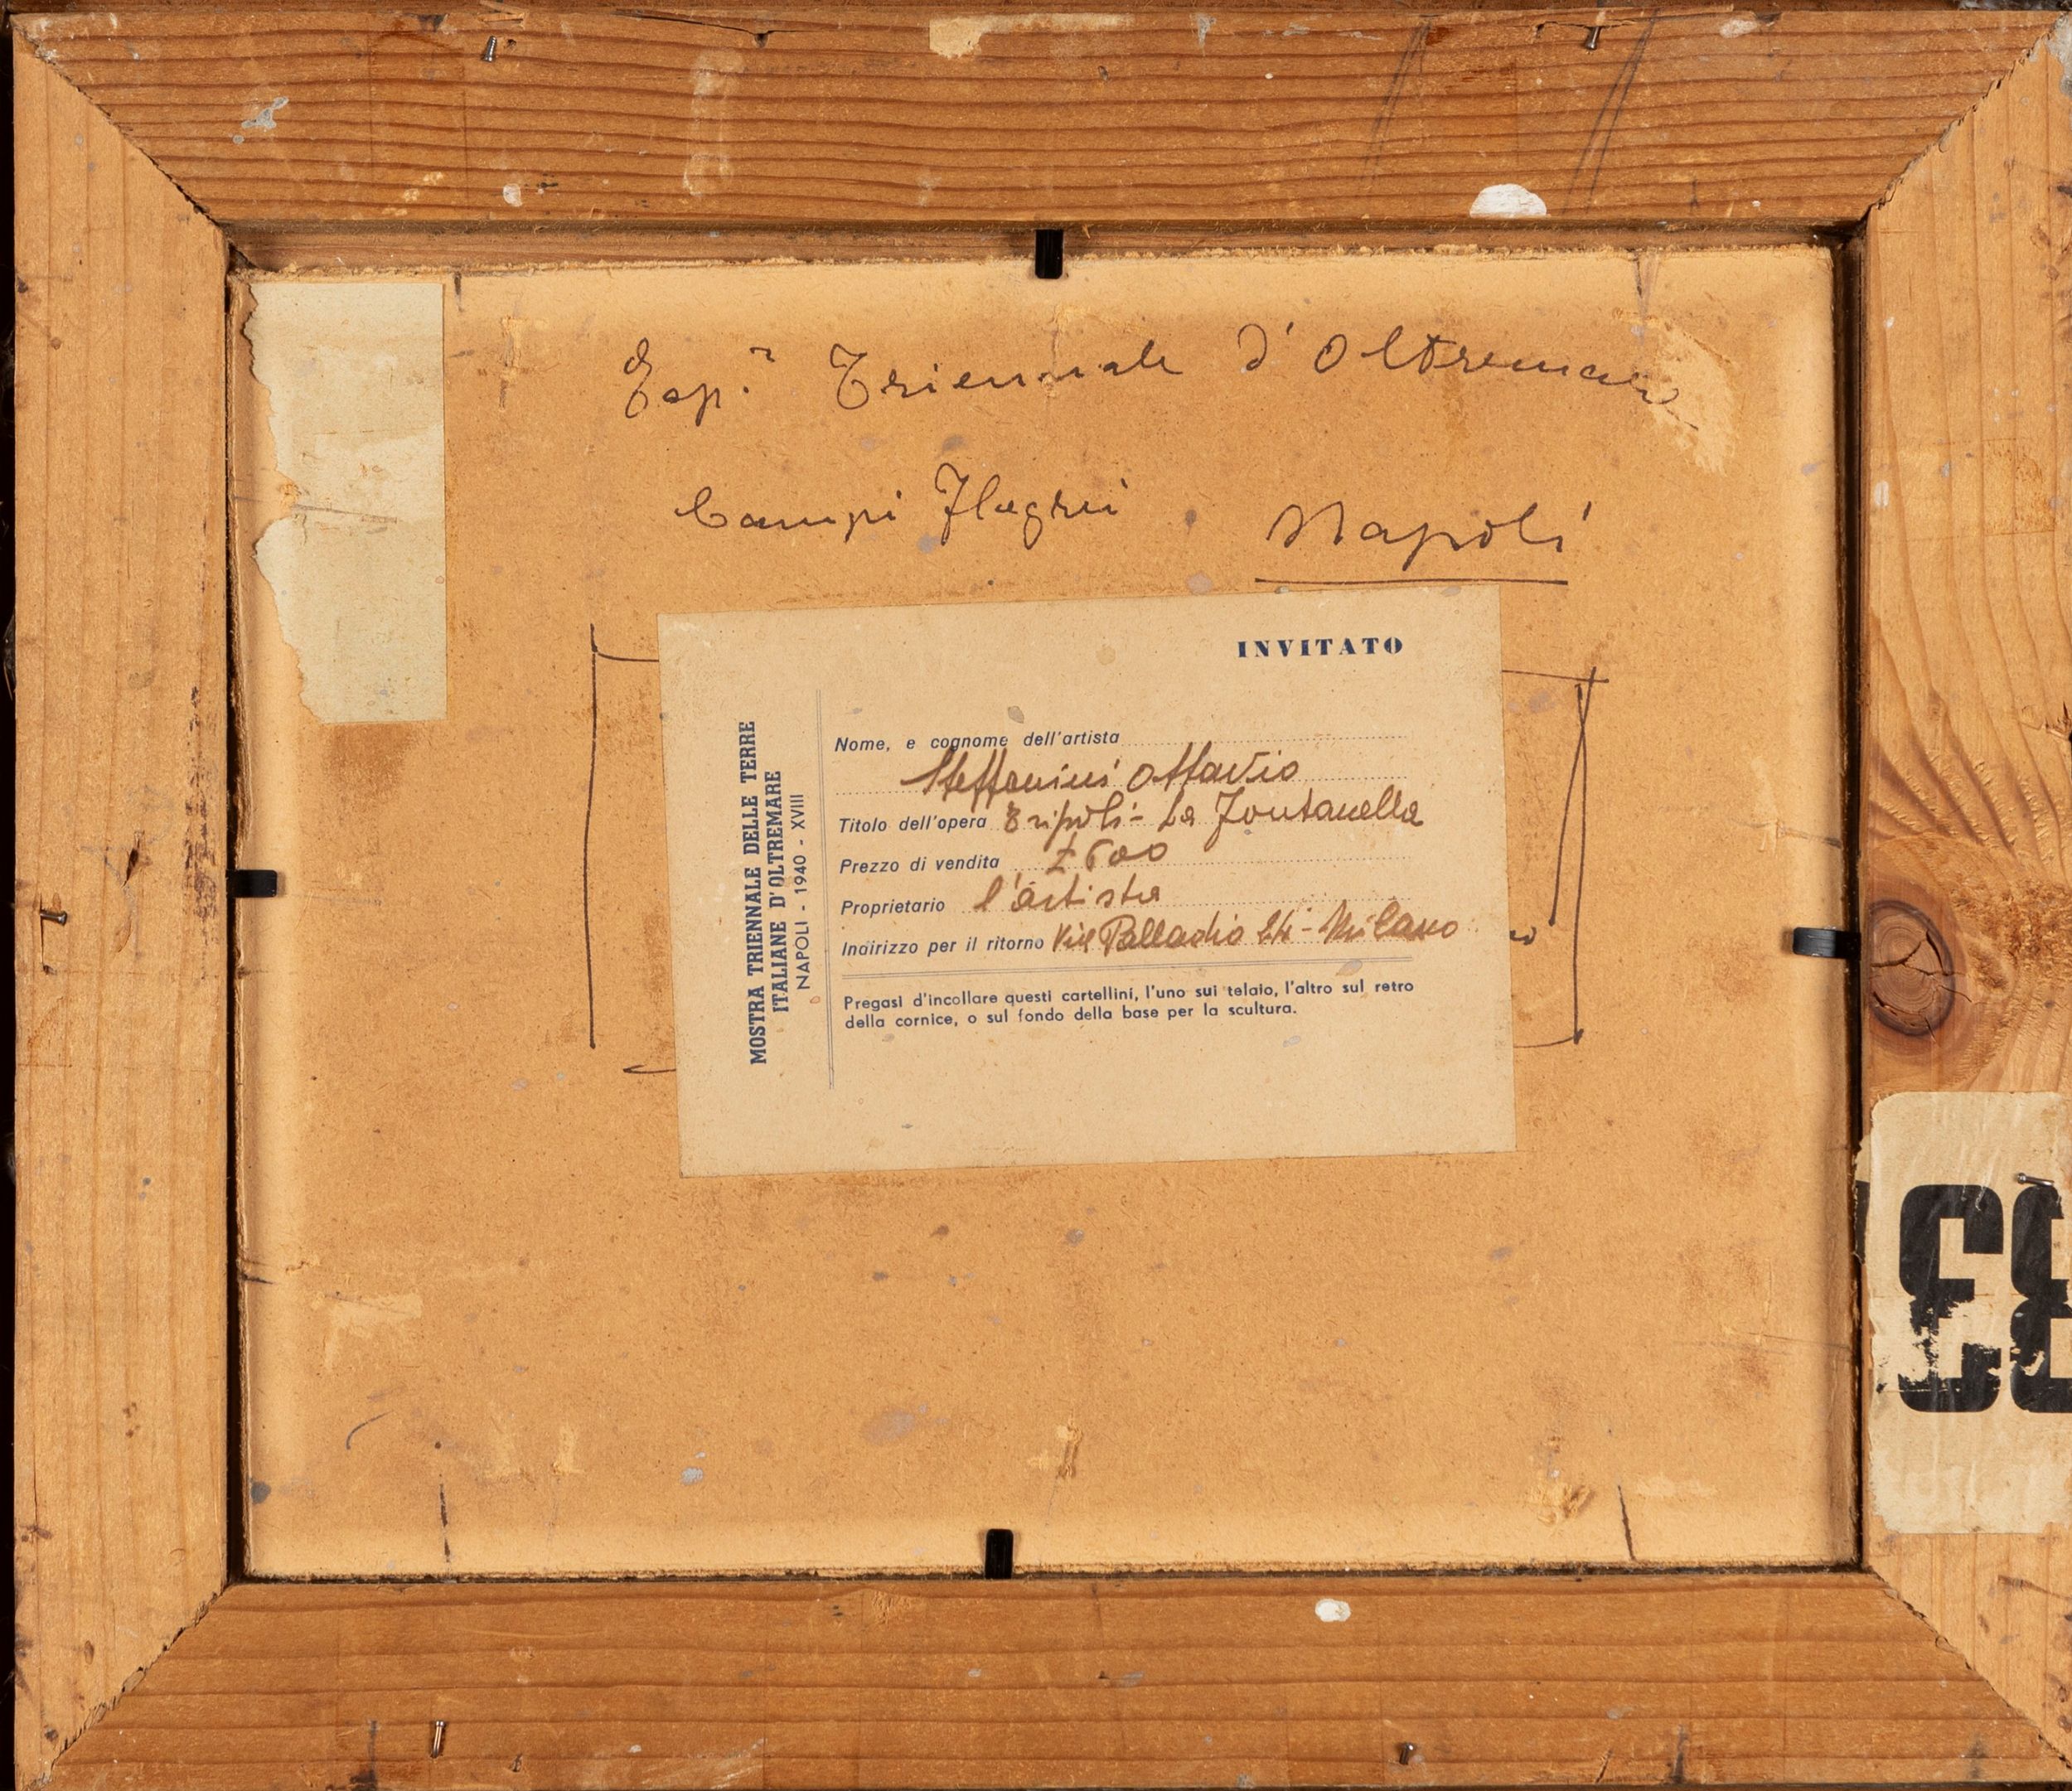 Esp.ne Triennale d'Oltremare
Campi Flegrei Napoli
INVITATO
MOSTRA TRIENNALE DELLE TERRE
ITALIANE D'OLTREMARE
NAPOLI - 1940 - XVIII
Nome, e cognome dell'artista
Steffenini Ottavio
Titolo dell'opera Tripoli - La Fontanella
Prezzo di vendita £ 600
Proprietario l'artista
Indirizzo per il ritorno Via Palladio 24 - Milano
Pregasi d'incollare questi cartellini, l'uno sul telaio, l'altro sul retro
della cornice, o sul fondo della base per la scultura.